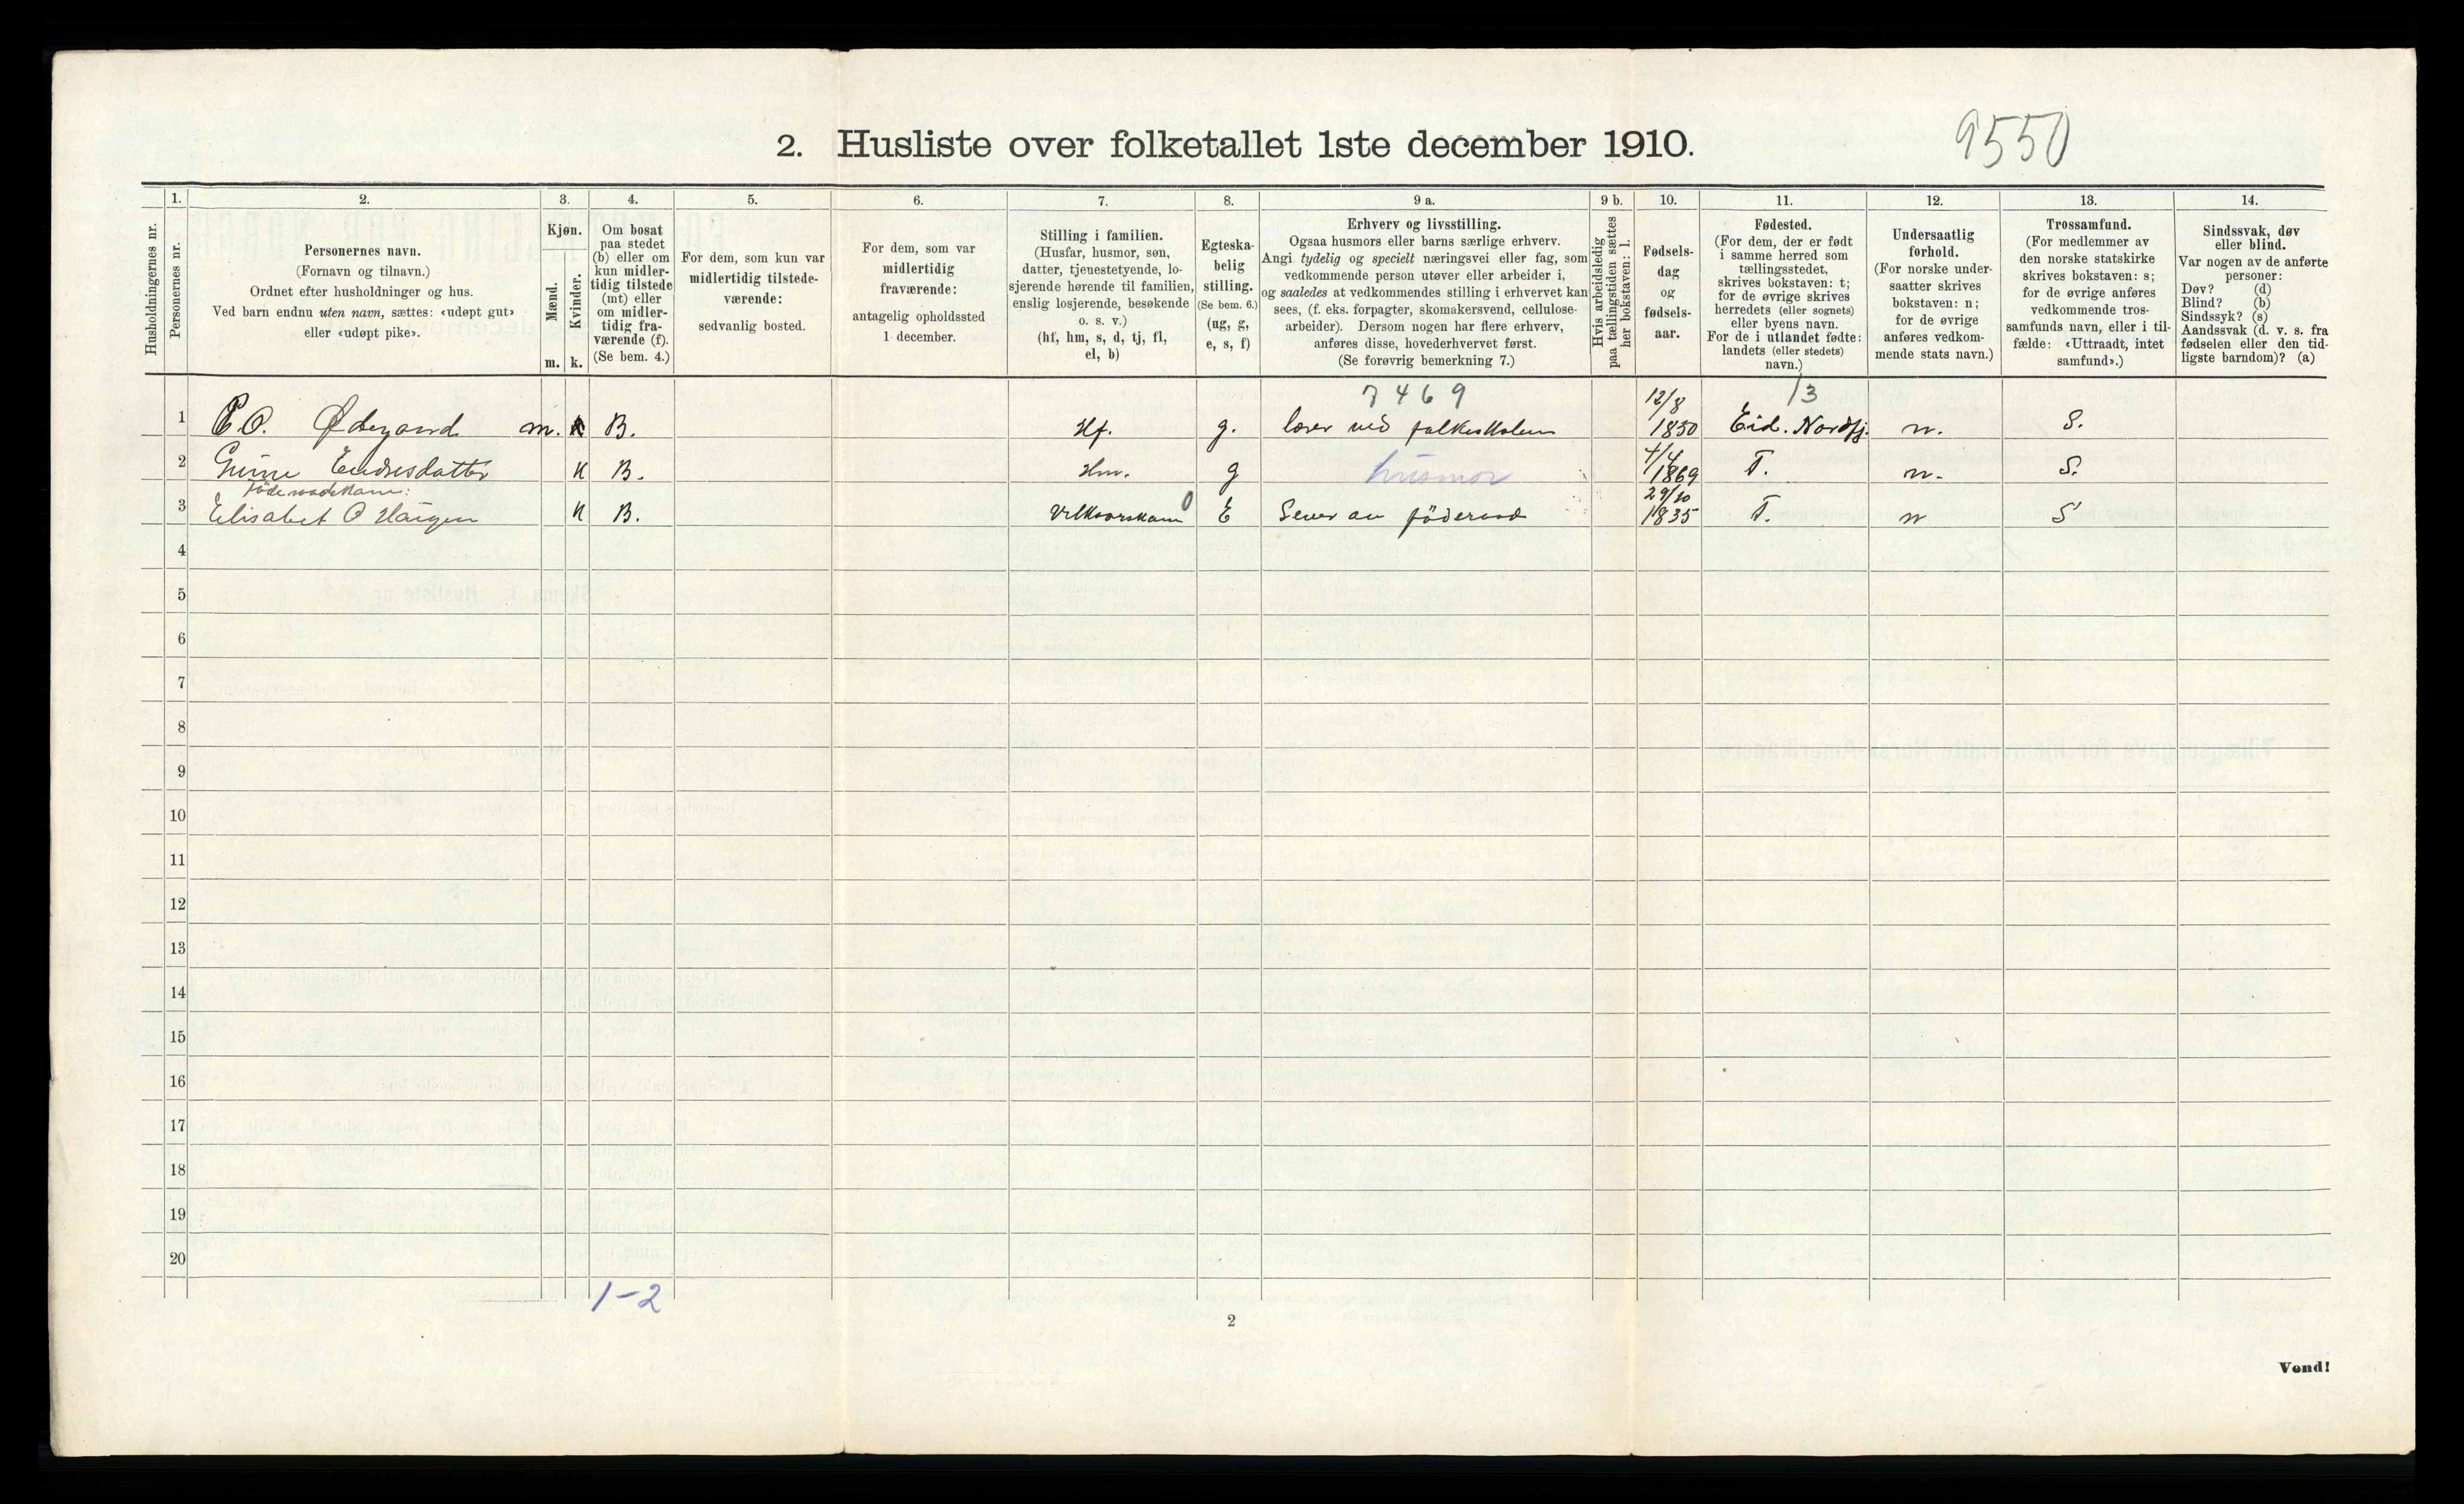 9550
2. Husliste over folketallet 1ste december 1910.
Husholdningernes nr.
1.
Personernes nr.
2.
Personernes navn.
(Fornavn og tilnavn.)
Ordnet efter husholdninger og hus.
Ved barn endnu uten navn, sættes: «udøpt gut»
eller «udøpt pike».
3.
Kjøn.
Mænd.
Kvinder.
m. k.
4.
Om bosat
paa stedet
(b) eller om
kun midler-
tidig tilstede
(mt) eller
om midler-
tidig fra-
værende (f).
(Se bem. 4.)
5.
For dem, som kun var
midlertidig tilstede-
værende:
sedvanlig bosted.
6.
For dem, som var
midlertidig
fraværende:
antagelig opholdssted
1 december.
7.
Stilling i familien.
(Husfar, husmor, søn,
datter, tjenestetyende, lo-
sjerende hørende til familien,
enslig losjerende, besøkende
o. s. v.)
(hf, hm, s, d, tj, fl,
el, b)
8.
Egteska-
belig
stilling.
(Se bem. 6.)
(ug, g,
e, s, f)
9 a.
Erhverv og livsstilling.
Ogsaa husmors eller barns særlige erhverv.
Angi tydelig og specielt næringsvei eller fag, som
vedkommende person utøver eller arbeider i,
og saaledes at vedkommendes stilling i erhvervet kan
sees, (f. eks. forpagter, skomakersvend, cellulose-
arbeider). Dersom nogen har flere erhverv,
anføres disse, hovederhvervet først.
(Se forøvrig bemerkning 7.)
9 b.
Hvis arbeidsledig
paa tællingstiden sættes
her bokstaven: l.
10.
Fødsels-
dag
og
fødsels-
aar.
11.
Fødested.
(For dem, der er født
i samme herred som
tællingsstedet,
skrives bokstaven: t;
for de øvrige skrives
herredets (eller sognets)
eller byens navn.
For de i utlandet fødte:
landets (eller stedets)
navn.)
12.
Undersaatlig
forhold.
(For norske under-
saatter skrives
bokstaven: n;
for de øvrige
anføres vedkom-
mende stats navn.)
13.
Trossamfund.
(For medlemmer av
den norske statskirke
skrives bokstaven: s;
for de øvrige anføres
vedkommende tros-
samfunds navn, eller i til-
fælde: «Uttraadt, intet
samfund».)
14.
Sindssvak, døv
eller blind.
Var nogen av de anførte
personer:
Døv? (d)
Blind? (b)
Sindssyk? (s)
Aandssvak (d. v. s. fra
fødselen eller den tid-
ligste barndom)? (a)
7469 12/8 13
1 Ødegaard m. B. Hf. g. lærer ved folkeskolen 1850 Eid. Nordfj. n. S.
4/4
2 Endresdatter K B. Hm. g husmor 1869 T. n. S.
29/10
3 Elisabet O Haugen K B. 0 E Lever av föderaad 1835 T. n S
4
5
6
7
8
9
10
11
12
13
14
15
16
17
18
19
20
1-2
2
Vend!